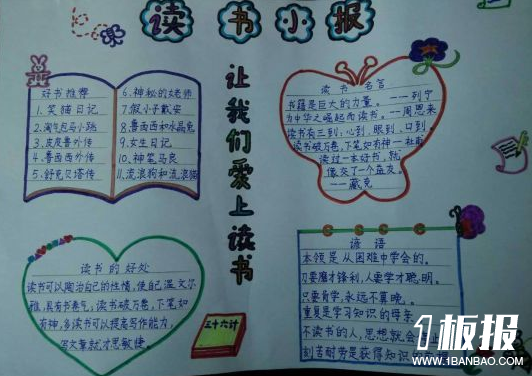 读书小报
让我们爱上读书
好书推荐
1.笑猫日记
2.淘气包马小跳
3.皮皮鲁外传
4.鲁西西外传
5.舒克贝塔传
6.神秘的女老师
7.假小子戴安
8.鲁西西和水晶兔
9.女生日记
10.神笔马良
11.流浪狗和流浪猫
读书名言
书籍是巨大的力量。——列宁
为中华之崛起而读书。——周恩来
读书有三到,心到、眼到、口到。
读书破万卷,下笔如有神——杜甫
读过一本好书,就
像交了一个益友。
——臧克
读书的好处
读书可以陶冶自己的性情,使自己温文尔
雅,具有书卷气;读书破万卷,下笔如
有神,多读书可以提高写作能力,
写文章就才思敏捷。
三十六计
谚语
本领是从困难中学会的。
刀要磨才锋利,人要学才聪明。
只要肯学,永远不算晚。
重复是学习知识的母亲
不读书的人,思想就会
刻苦耐劳是获得知识的
1板报
WWW.1BANBAO.COM